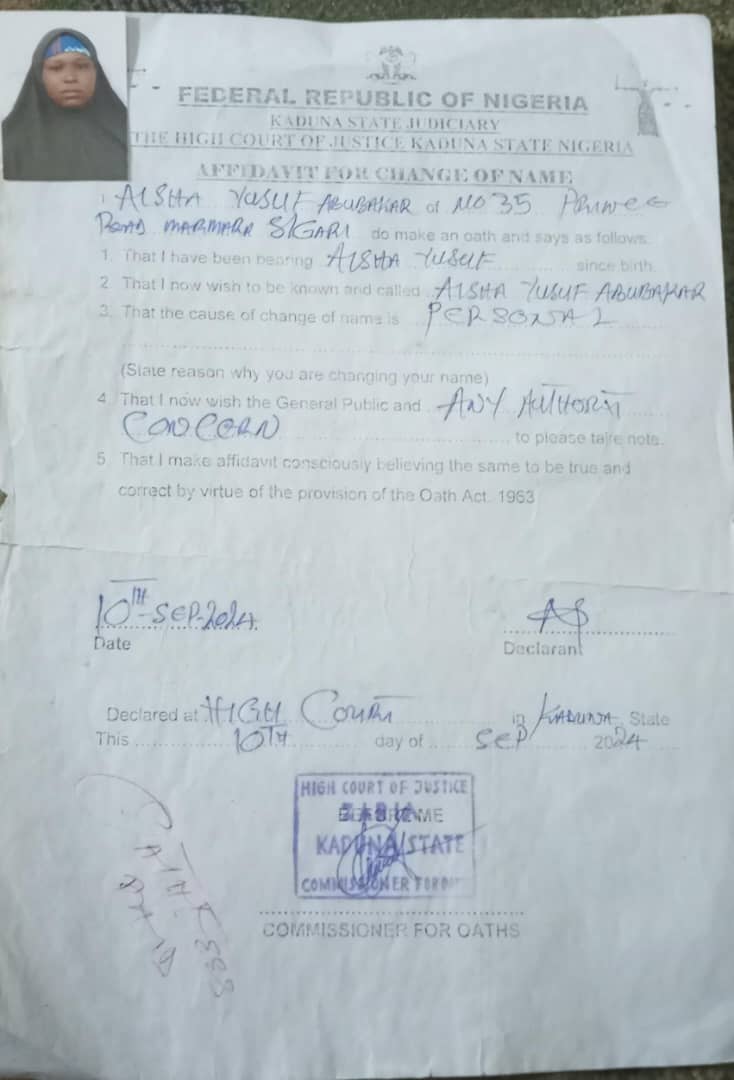 FEDERAL REPUBLIC OF NIGERIA
KADUNA STATE JUDICIARY
THE HIGH COURT OF JUSTICE KADUNA STATE NIGERIA
AFFIDAVIT FOR CHANGE OF NAME
I AISHA YUSUF ABUBAKAR of NO 35
ROAD MARMARA do make an oath and says as follows.
1. That I have been bearing AISHA YUSUF since birth.
2. That I now wish to be known and called AISHA YUSUF ABUBAKAR
3. That the cause of change of name is PERSONAL
(State reason why you are changing your name)
4. That I now wish the General Public and ANY AUTHORIT
CONCERN to please tajre note.
5. That I make affidavit consciously believing the same to be true and
correct by virtue of the provision of the Oath Act. 1963
10TH-SEP-2024
Date
Declarant
Declared at HIGH COURT in KADUNA State
This 10TH day of SEP 2024
HIGH COURT OF JUSTICE
ZARIA
BEFORE ME
KADUNA STATE
COMMISSIONER FOR
COMMISSIONER FOR OATHS
PAID